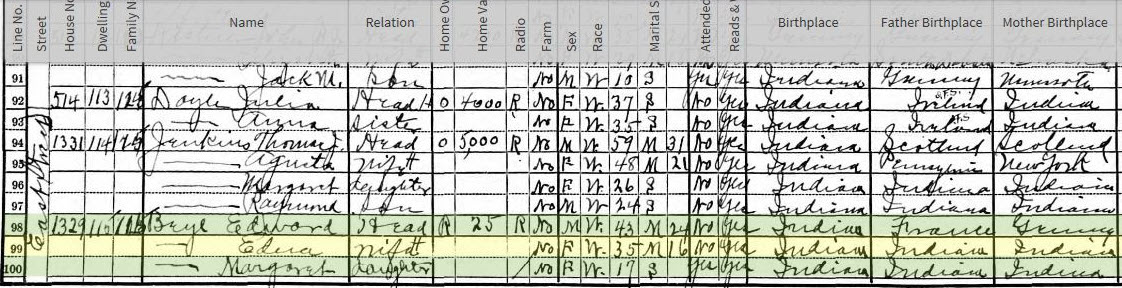 Line No. Street House No Dwelling Family N Name Relation Home Ow Home Va Radio Farm Sex Race Marital S Attended Reads & W Birthplace Father Birthplace Mother Birthplace
91 — Jack M. Son No M W 10 S Yes Yes Indiana Germany Minnesota
92 514 113 124 Doyle Julia Head H O 4000 R No F W 37 S No Yes Indiana Ireland Indiana
93 — Anna Sister No F W 35 S No Yes Indiana Ireland Indiana
94 1331 114 125 Jenkins Thomas J. Head O 5,000 R No M W 59 M 31 No Yes Indiana Scotland Scotland
95 — Wife H No F W 48 M 21 No Yes Indiana New York
96 — Margaret daughter No F W 26 S No Yes Indiana Indiana Indiana
97 — Raymond Son No M W 24 S No Yes Indiana Indiana Indiana
98 1329 115 Edward Head R 25 R No M W 43 M 24 No Yes Indiana France
99 — Edna Wife H No F W 35 M 16 No Yes Indiana Indiana Indiana
100 — Margaret daughter No F W 17 S Yes Yes Indiana Indiana Indiana